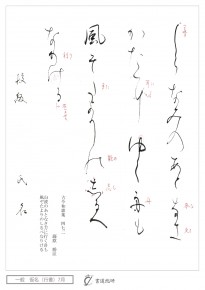 しらなみのあとなき
かたにゆく舟も
風そたよりのしるへ
なりける
段級 氏名
古今和歌集 四七二
藤原 勝臣
白波のあとなき方に行く舟も
風ぞたよりのしるべなりける